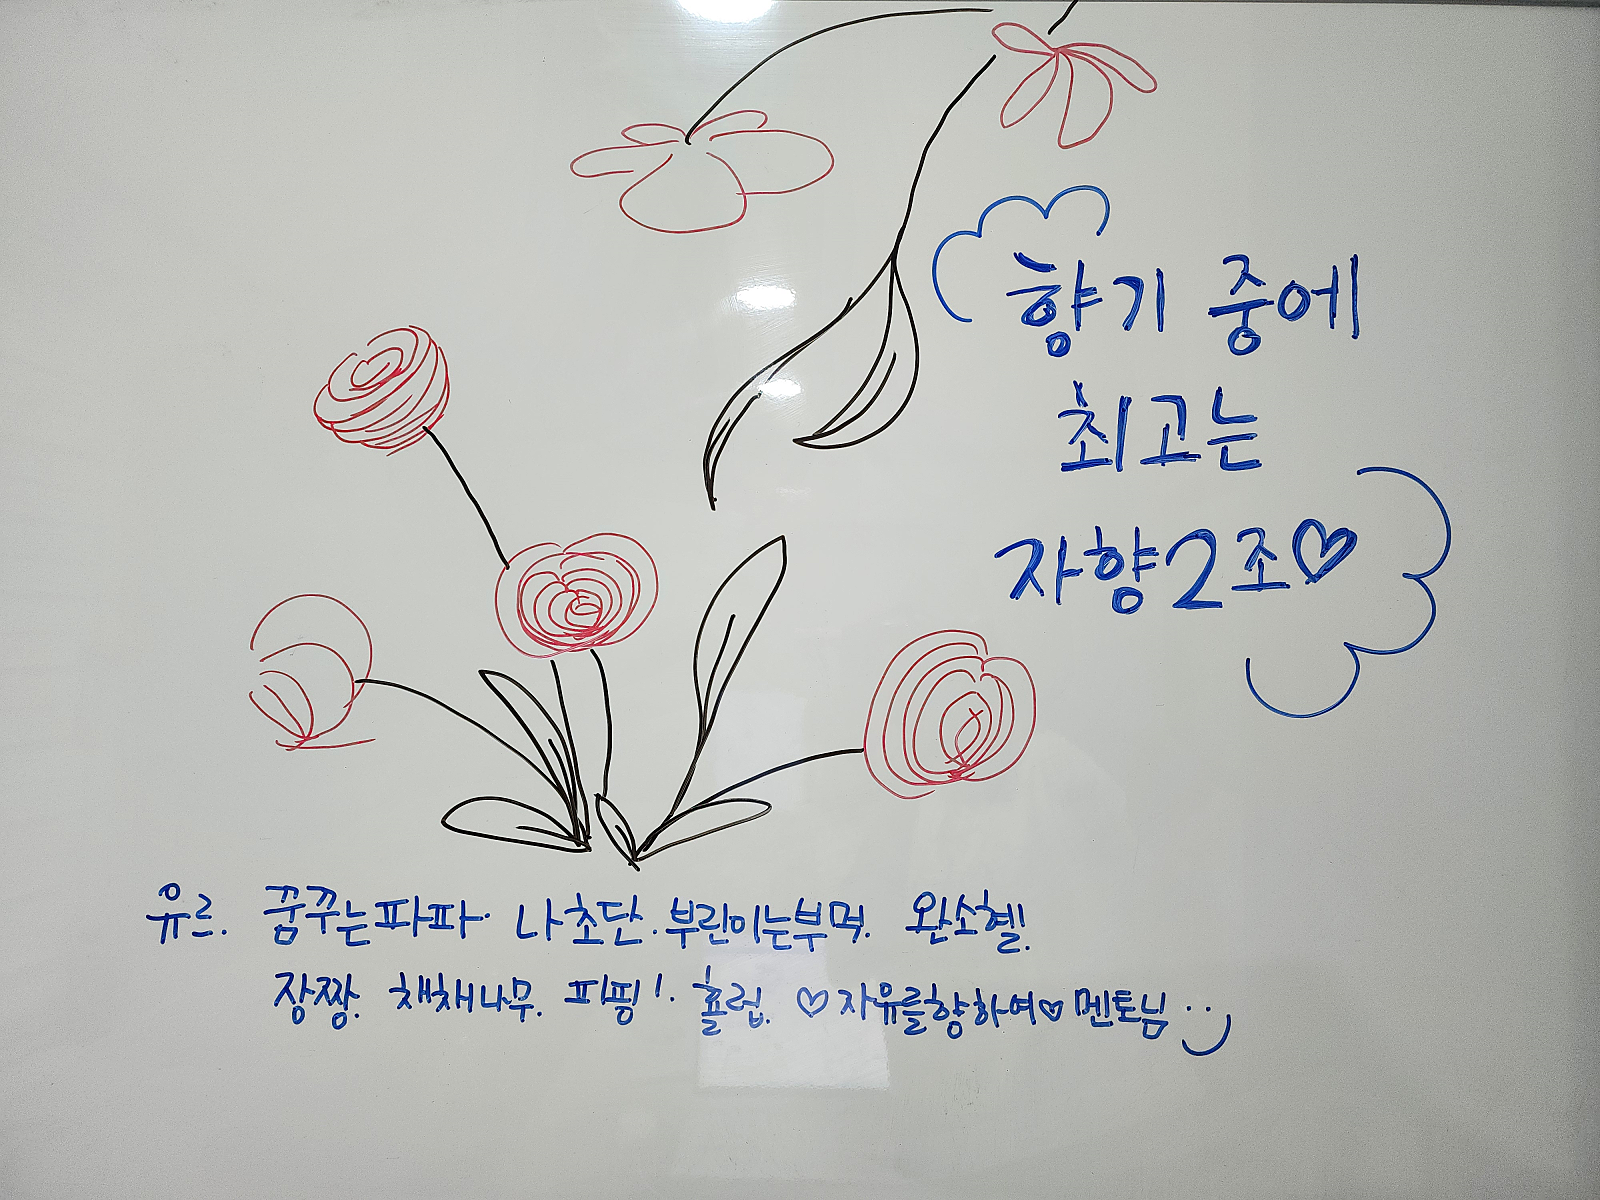 향기 중에
최고는
자향2조♡
유르. 꿈꾸는파파. 나초단. 부린이는부먹. 완소헬!
장짱. 채채나무. 피핑!. 휼럽. ♡자유를향하여♡멘토님 :)